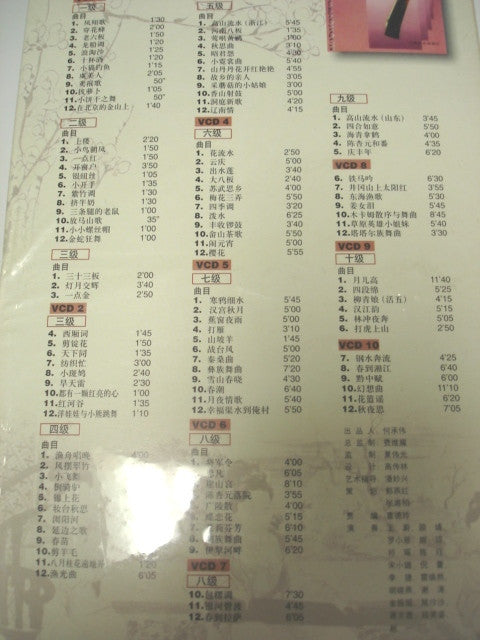 一级
曲目
1. 凤翔歌 1'30
2. 穿花蜂 1'50
3. 老六板 1'50
4. 龙船调 1'15
5. 浪淘沙 1'25
6. 十杯酒 1'20
7. 小猫钓鱼 1'15
8. 虞美人 2'05
50"
10. 拔萝卜 1'05
11. 小饼干之舞 50"
12. 在北京的金山上 1'40
二级
曲目
1. 上楼 2'20
2. 小鸟朝凤 1'50
3. 一点红 1'50
4. 开窗户 3'50
5. 银纽丝 1'05
6. 小开手 1'35
7. 紫竹调 1'30
8. 挤牛奶 1'30
9. 三条腿的老鼠 1'00
10. 放马山歌 35"
11. 小小螺丝帽 1'00
12. 金蛇狂舞 1'00
三级
曲目
1. 三十三板 2'00
2. 灯月交辉 3'40
3. 一点金 2'50
VCD 2
三级
4. 西厢词 1'45
5. 剪锭花 1'50
6. 天下同 1'35
7. 纺织忙 3'00
8. 小斑鸠 2'40
9. 旱天雷 2'30
10. 都有一颗红亮的心 1'00
11. 红河谷 1'35
12. 洋娃娃与小熊跳舞 1'10
四级
曲目
1. 渔舟唱晚 4'00
2. 风摆翠竹
3. 小飞舞
4. 倒骑驴
5. 锦上花
6. 妆台秋思
7. 浏阳河
8. 延边之歌
9. 春苗
10. 剪羊毛
11. 八月桂花遍地开 1'20
12. 渔光曲 6'05
五级
曲目
1. 高山流水（浙江） 5'45
2. 河南八板 1'35
3. 莺啭黄鹂 1'00
4. 秋思曲 3'10
5. 昭君怨 4'30
6. 小霓裳曲 5'40
7. 山丹丹花开红艳艳 4'55
8. 故乡的亲人 3'05
9. 采蘑菇的小姑娘 3'00
10. 香山射鼓 5'50
11. 洞庭新歌 4'20
12. 辽南情 4'15
VCD 4
六级
曲目
1. 花流水 2'50
2. 云庆 5'00
3. 出水莲 3'40
4. 大八板 2'40
5. 苏武思乡 4'00
6. 梅花三弄 5'50
7. 四季调 3'20
8. 泼水 6'25
9. 丰收锣鼓 3'40
10. 畲山茶歌 5'50
11. 闹元宵 5'00
12. 樱花 5'55
VCD 5
七级
曲目
1. 寒鸦戏水 5'45
2. 汉宫秋月 5'00
3. 蕉窗夜雨 5'00
4. 打雁 3'10
5. 山坡羊 1'45
6. 战台风 5'00
7. 秦桑曲 5'20
8. 彝族舞曲 7'20
9. 雪山春晓 4'30
10. 春潮 6'40
11. 月夜情歌 5'20
12. 幸福渠水到俺村 5'50
VCD 6
八级
曲目
1. 将军令 4'00
6'00
8'10
3'55
广陵散 4'00
5'15
6'10
5'45
9. 伊犁河畔 6'20
VCD 7
八级
10. 包楞调 7'30
11. 银河碧波 4'45
12. 春到拉萨 6'05
九级
曲目
1. 高山流水（山东） 3'45
2. 四合如意 5'50
3. 海青拿鹤 4'00
4. 陈杏元和番 4'35
5. 庆丰年 6'20
VCD 8
6. 铁马吟 6'30
7. 井冈山上太阳红 3'55
8. 东海渔歌 5'30
9. 姜女泪 5'45
10. 木卡姆散序与舞曲 8'45
11. 草原英雄小姐妹 5'40
12. 塔塔尔族舞曲 3'30
VCD 9
十级
曲目
1. 月儿高 11'40
2. 四段锦 5'25
3. 柳青娘（活五） 4'15
4. 汉江韵 5'15
5. 林冲夜奔 5'05
6. 打虎上山 2'50
VCD 10
7. 钢水奔流 4'25
8. 春到湘江 6'40
9. 黔中赋 6'00
10. 幻想曲 11'10
11. 花逍遥 6'20
12. 秋夜思 7'05
出品人
总监制
监制
设计
艺术指导
策划
责编
演奏